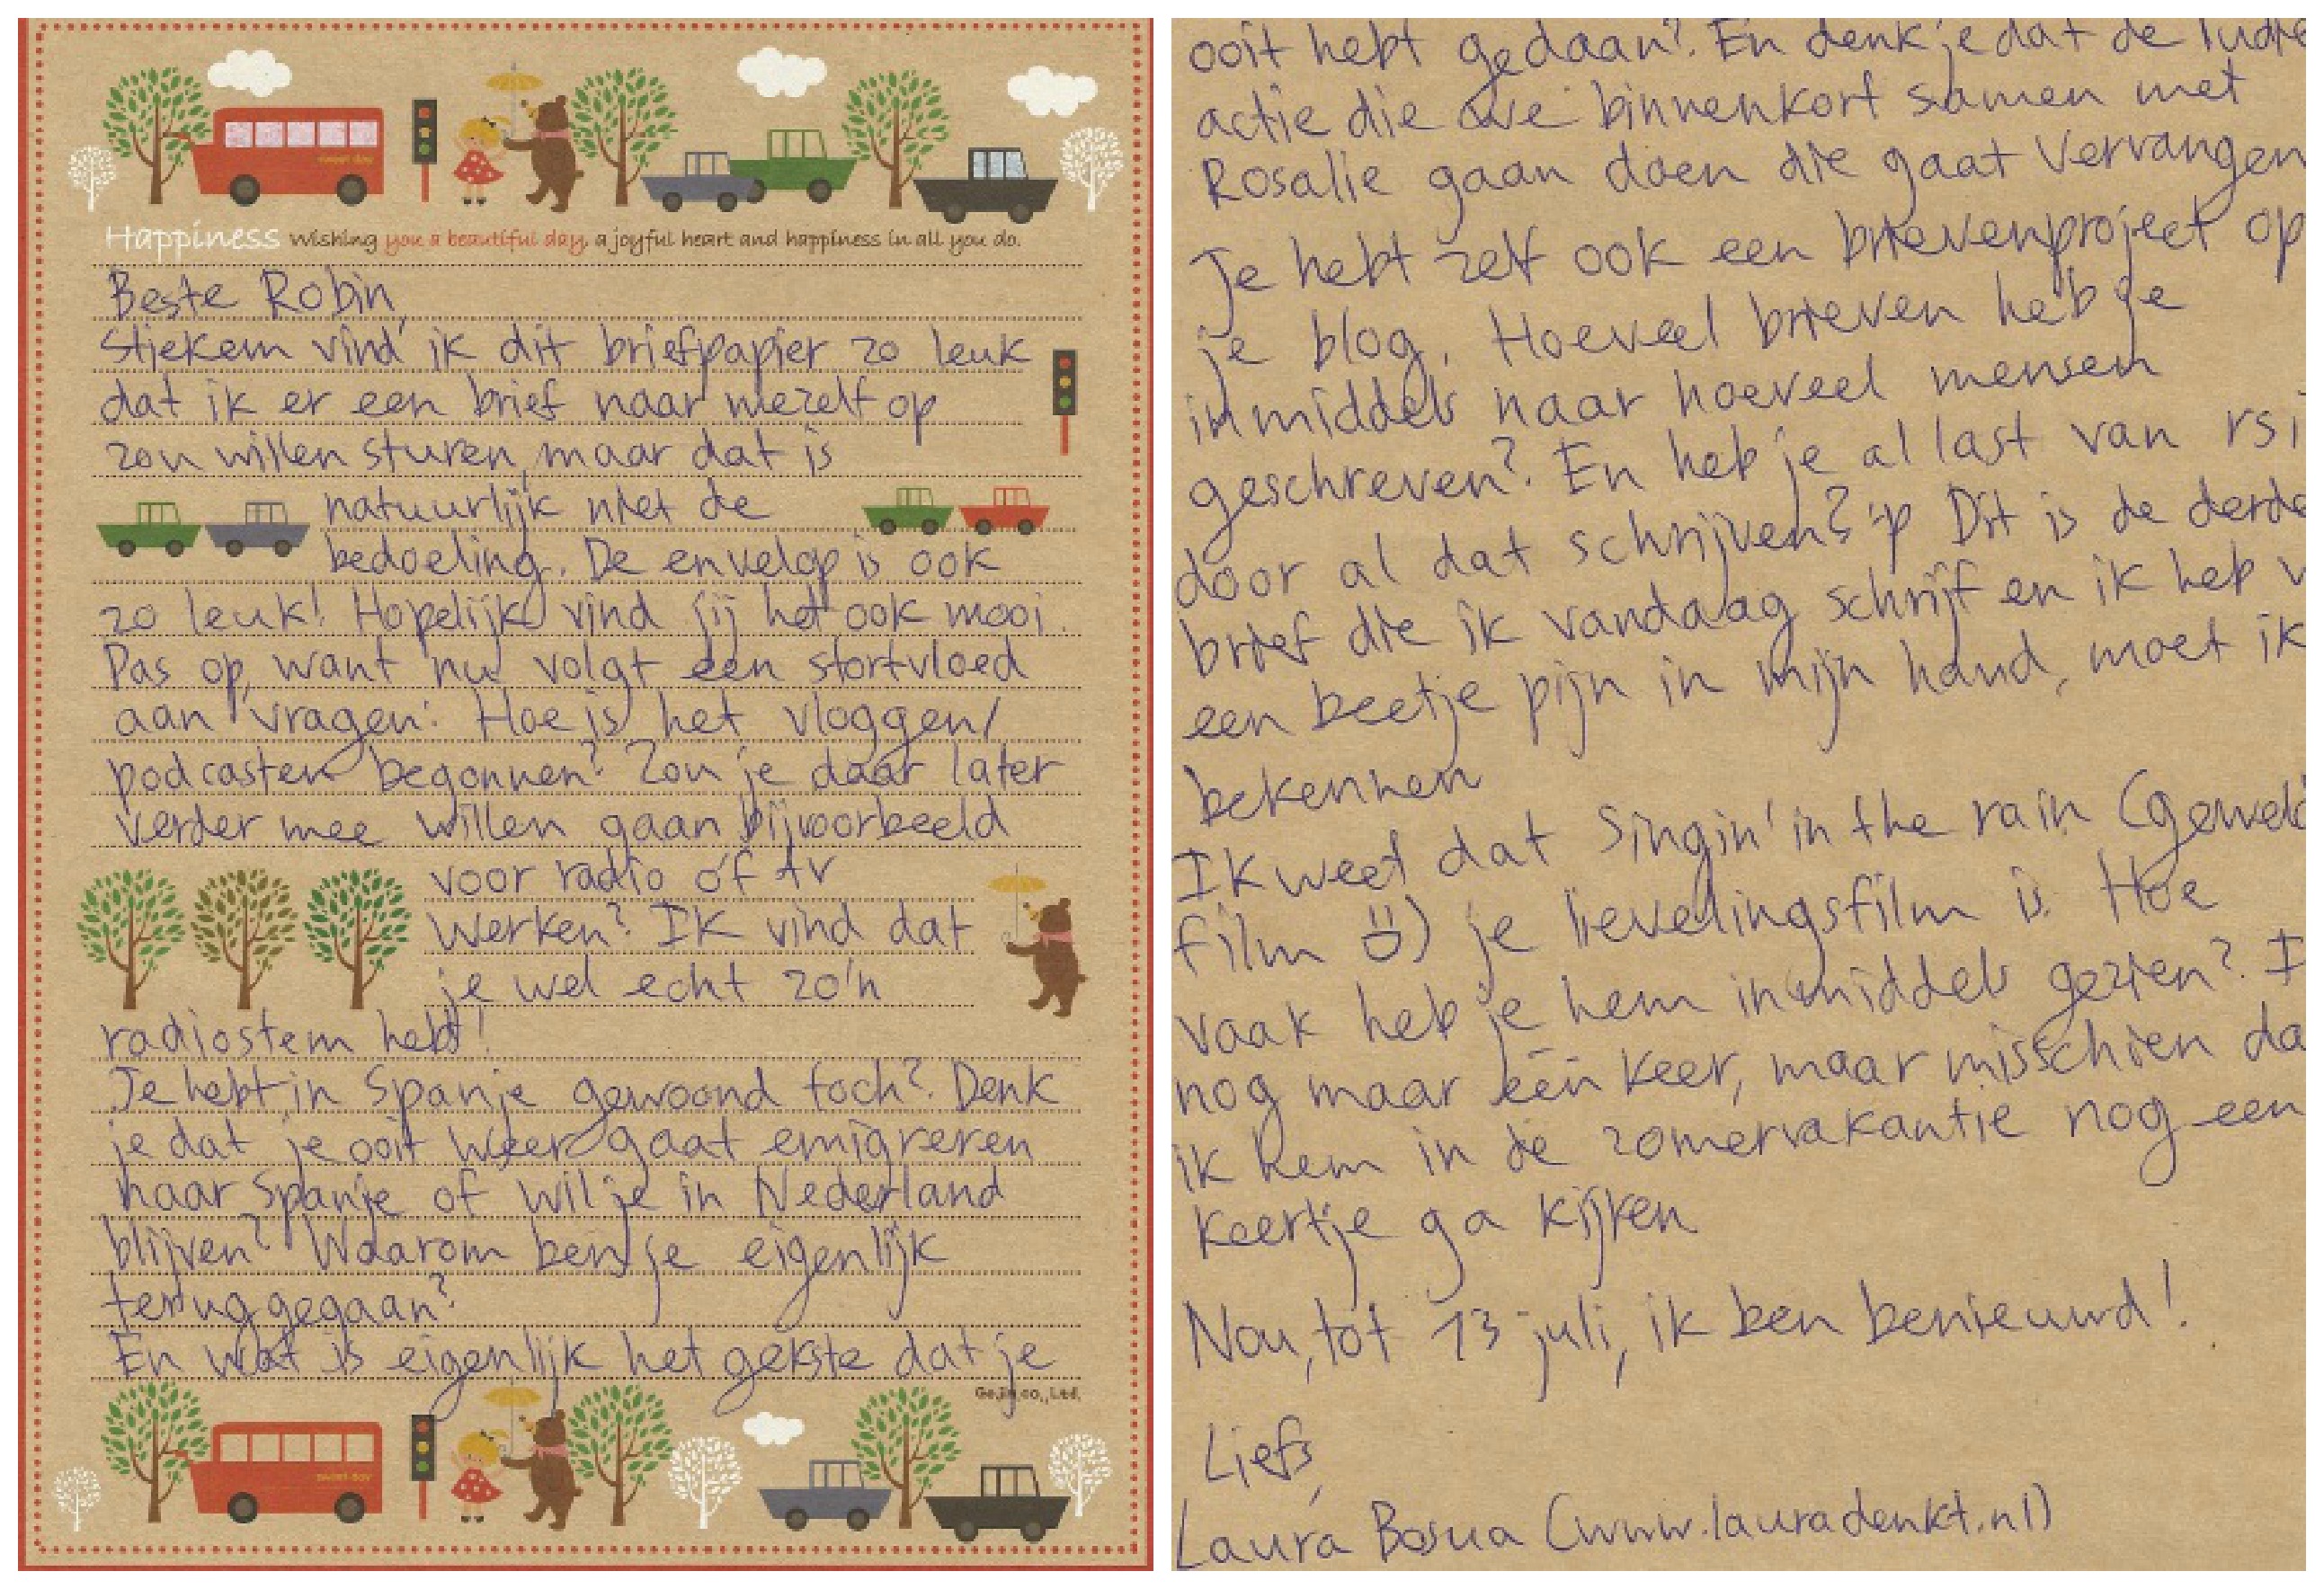 sweet day
Happiness Wishing you a beautiful day, a joyful heart and happiness in all you do.
Beste Robin,
Stiekem vind ik dit briefpapier zo leuk
dat ik er een brief naar mezelf op
zou willen sturen, maar dat is
natuurlijk niet de
bedoeling. De envelop is ook
zo leuk! Hopelijk vind jij het ook mooi.
Pas op, want nu volgt een stortvloed
aan vragen: Hoe is het vloggen/
podcasten begonnen? Zou je daar later
verder mee willen gaan bijvoorbeeld
voor radio óf tv
werken? Ik vind dat
je wel echt zo'n
radiostem hebt!
Je hebt in Spanje gewoond toch? Denk
je dat je ooit weer gaat emigreren
naar Spanje of wil je in Nederland
blijven? Waarom ben je eigenlijk
teruggegaan?
En wat is eigenlijk het gekste dat je
Gojip co., Ltd.
sweet day
ooit hebt gedaan? En denk je dat de ludie
actie die we binnenkort samen met
Rosalie gaan doen die gaat vervangen
Je hebt zelf ook een brievenproject op
je blog. Hoeveel brieven heb je
inmiddels naar hoeveel mensen
geschreven? En heb je al last van rsi
door al dat schrijven? :p Dit is de derde
brief die ik vandaag schrijf en ik heb w
een beetje pijn in mijn hand, moet ik
bekennen
Ik weet dat Singin' in the rain (geweld
film :D) je lievelingsfilm is. Hoe
vaak heb je hem inmiddels gezien? I
nog maar één keer, maar misschien da
ik hem in de zomervakantie nog een
keertje ga kijken
Nou, tot 13 juli, ik ben benieuwd!
Liefs,
Laura Bosua (www.lauradenkt.nl)